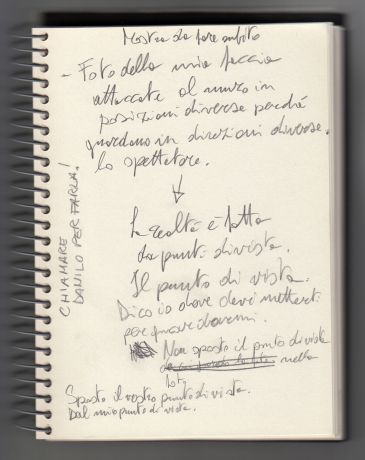 Mostra da fare subito
- Foto della mia faccia
attaccate al muro in
posizioni diverse perché
guardano in direzioni diverse.
lo spettatore.
↓
La realtà è fatta
da punti di vista.
Il punto di vista.
Dico io dove devi metterti
per guardarmi.
Non sposto il punto di vista
nella
foto.
Sposto il vostro punto di vista.
Dal mio punto di vista.
CHIAMARE
DANILO PER FARLA!